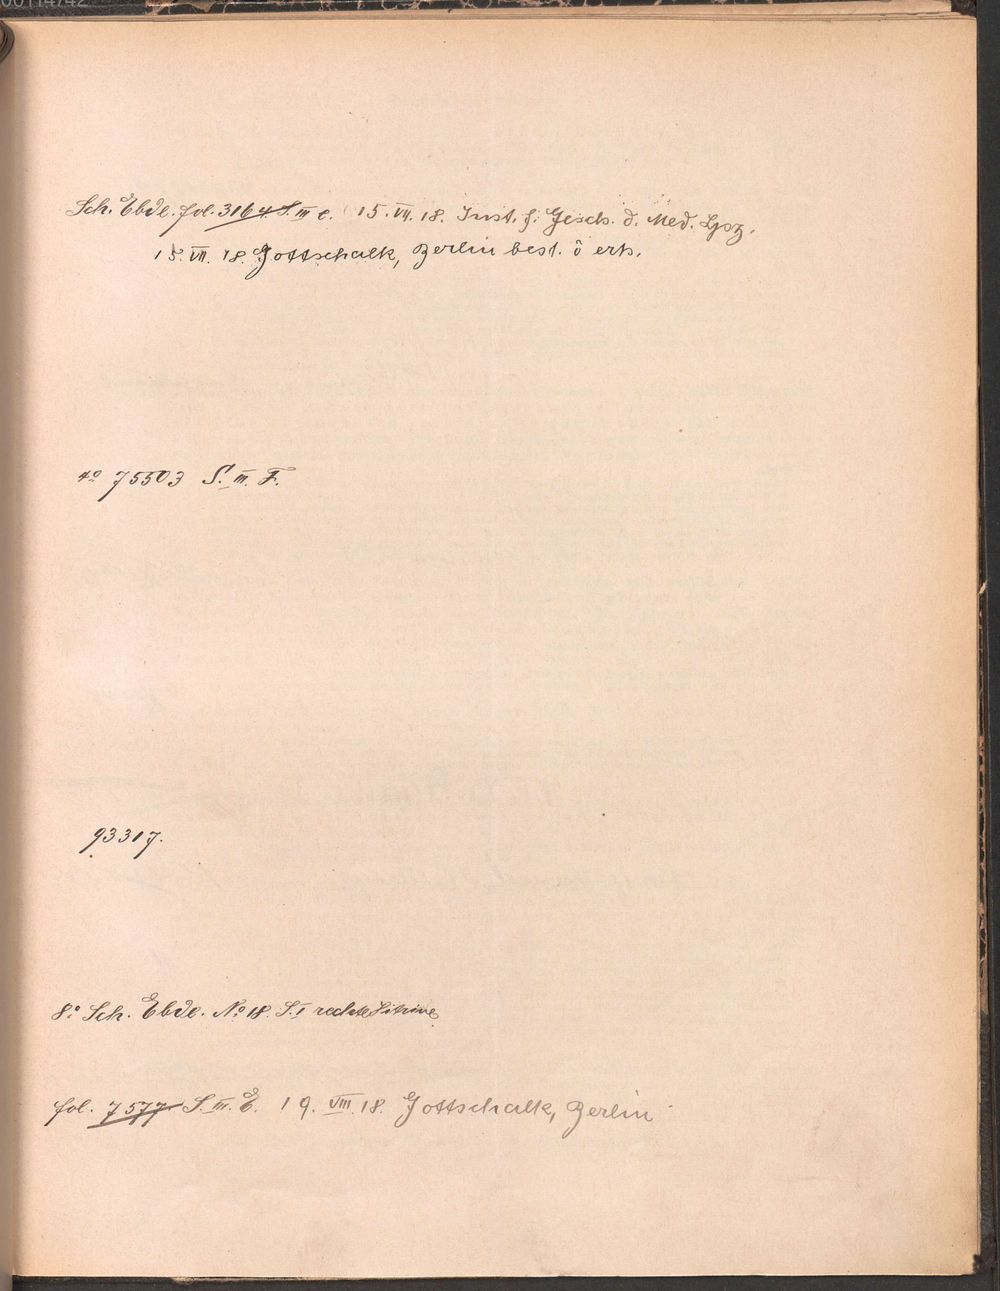 00114742
Sch. Ebde. fol. 3164 S. III e. 15. VII. 18. Inst. f. Gesch. d. Med. Lpz.
15. VII. 18. Gottschalk, Berlin best. ō erh.
4° 75503 S. III. F.
93317.
8° Sch. Ebde. No 18. S. I rechte Vitrine
fol. 7577 S. III. E. 19. VIII. 18. Gottschalk, Berlin